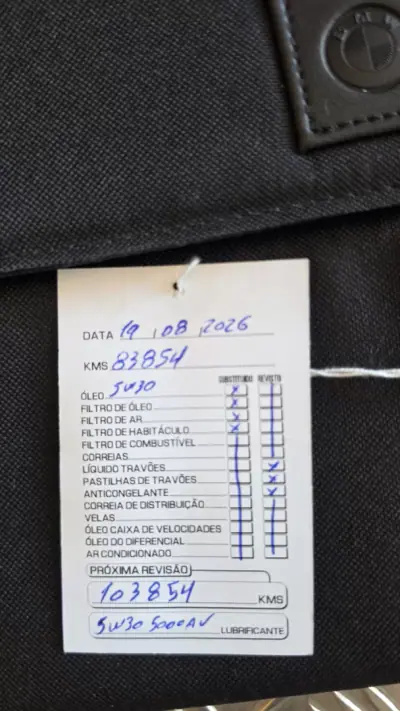 BMW
DATA 19, 08, 2026
KMS 83854
SUBSTITUÍDO REVISTO
ÓLEO 5W30 X
FILTRO DE ÓLEO X
FILTRO DE AR X
FILTRO DE HABITÁCULO X
FILTRO DE COMBUSTÍVEL
CORREIAS
LÍQUIDO TRAVÕES X
PASTILHAS DE TRAVÕES X
ANTICONGELANTE X
CORREIA DE DISTRIBUIÇÃO
VELAS
ÓLEO CAIXA DE VELOCIDADES
ÓLEO DO DIFERENCIAL
AR CONDICIONADO
PRÓXIMA REVISÃO
103854 KMS
5W30 5000AV LUBRIFICANTE